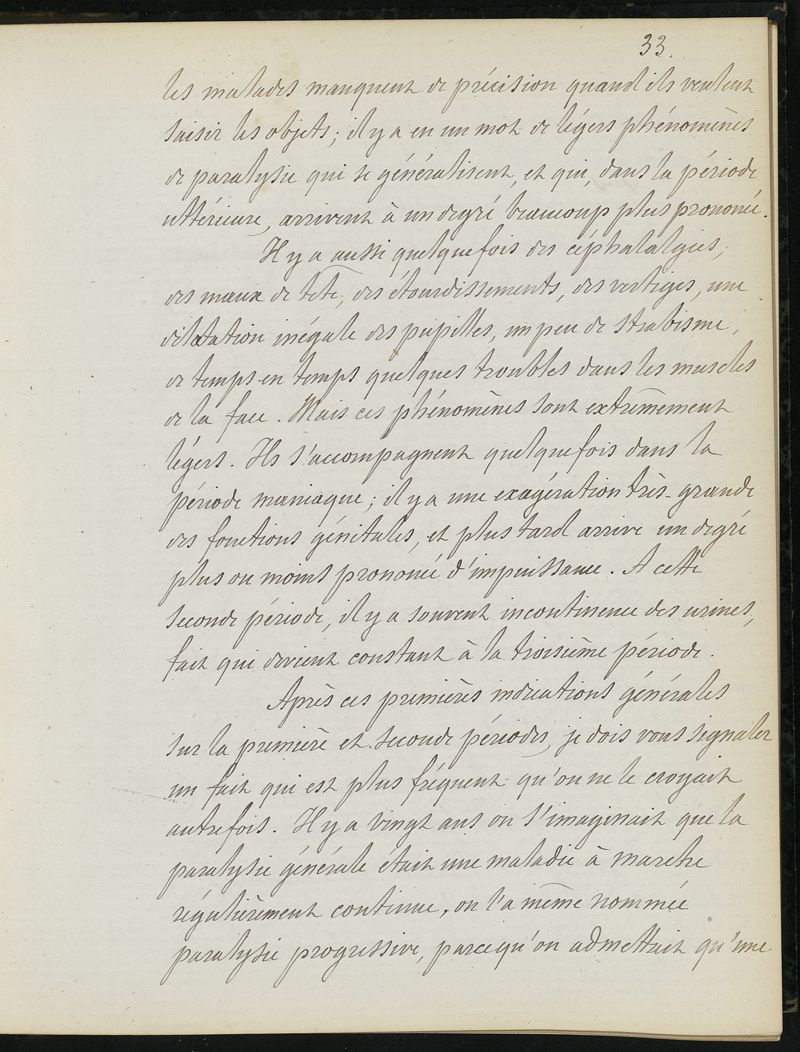 33.
les malades manquent de précision quand ils veulent
saisir les objets; il y a en un mot de légers phénomènes
de paralysie qui se généralisent, et qui, dans la période
ultérieure, arrivent à un degré beaucoup plus prononcé.
Il y a aussi quelquefois des céphalalgies,
des maux de tête, des étourdissements, des vertiges, une
dilatation inégale des pupilles, un peu de strabisme,
de temps en temps quelques troubles dans les muscles
de la face. Mais ces phénomènes sont extrêmement
légers. Ils s'accompagnent quelquefois dans la
période maniaque; il y a une exagération très-grande
des fonctions génitales, et plus tard arrive un degré
plus ou moins prononcé d'impuissance. A cette
seconde période, il y a souvent incontinence des urines,
fait qui devient constant à la troisième période.
Après ces premières indications générales
sur la première et seconde périodes, je dois vous signaler
un fait qui est plus fréquent qu'on ne le croyait
autrefois. Il y a vingt ans on s'imaginait que la
paralysie générale était une maladie à marche
régulièrement continue, on l'a même nommée
paralysie progressive, parce qu'on admettait qu'une